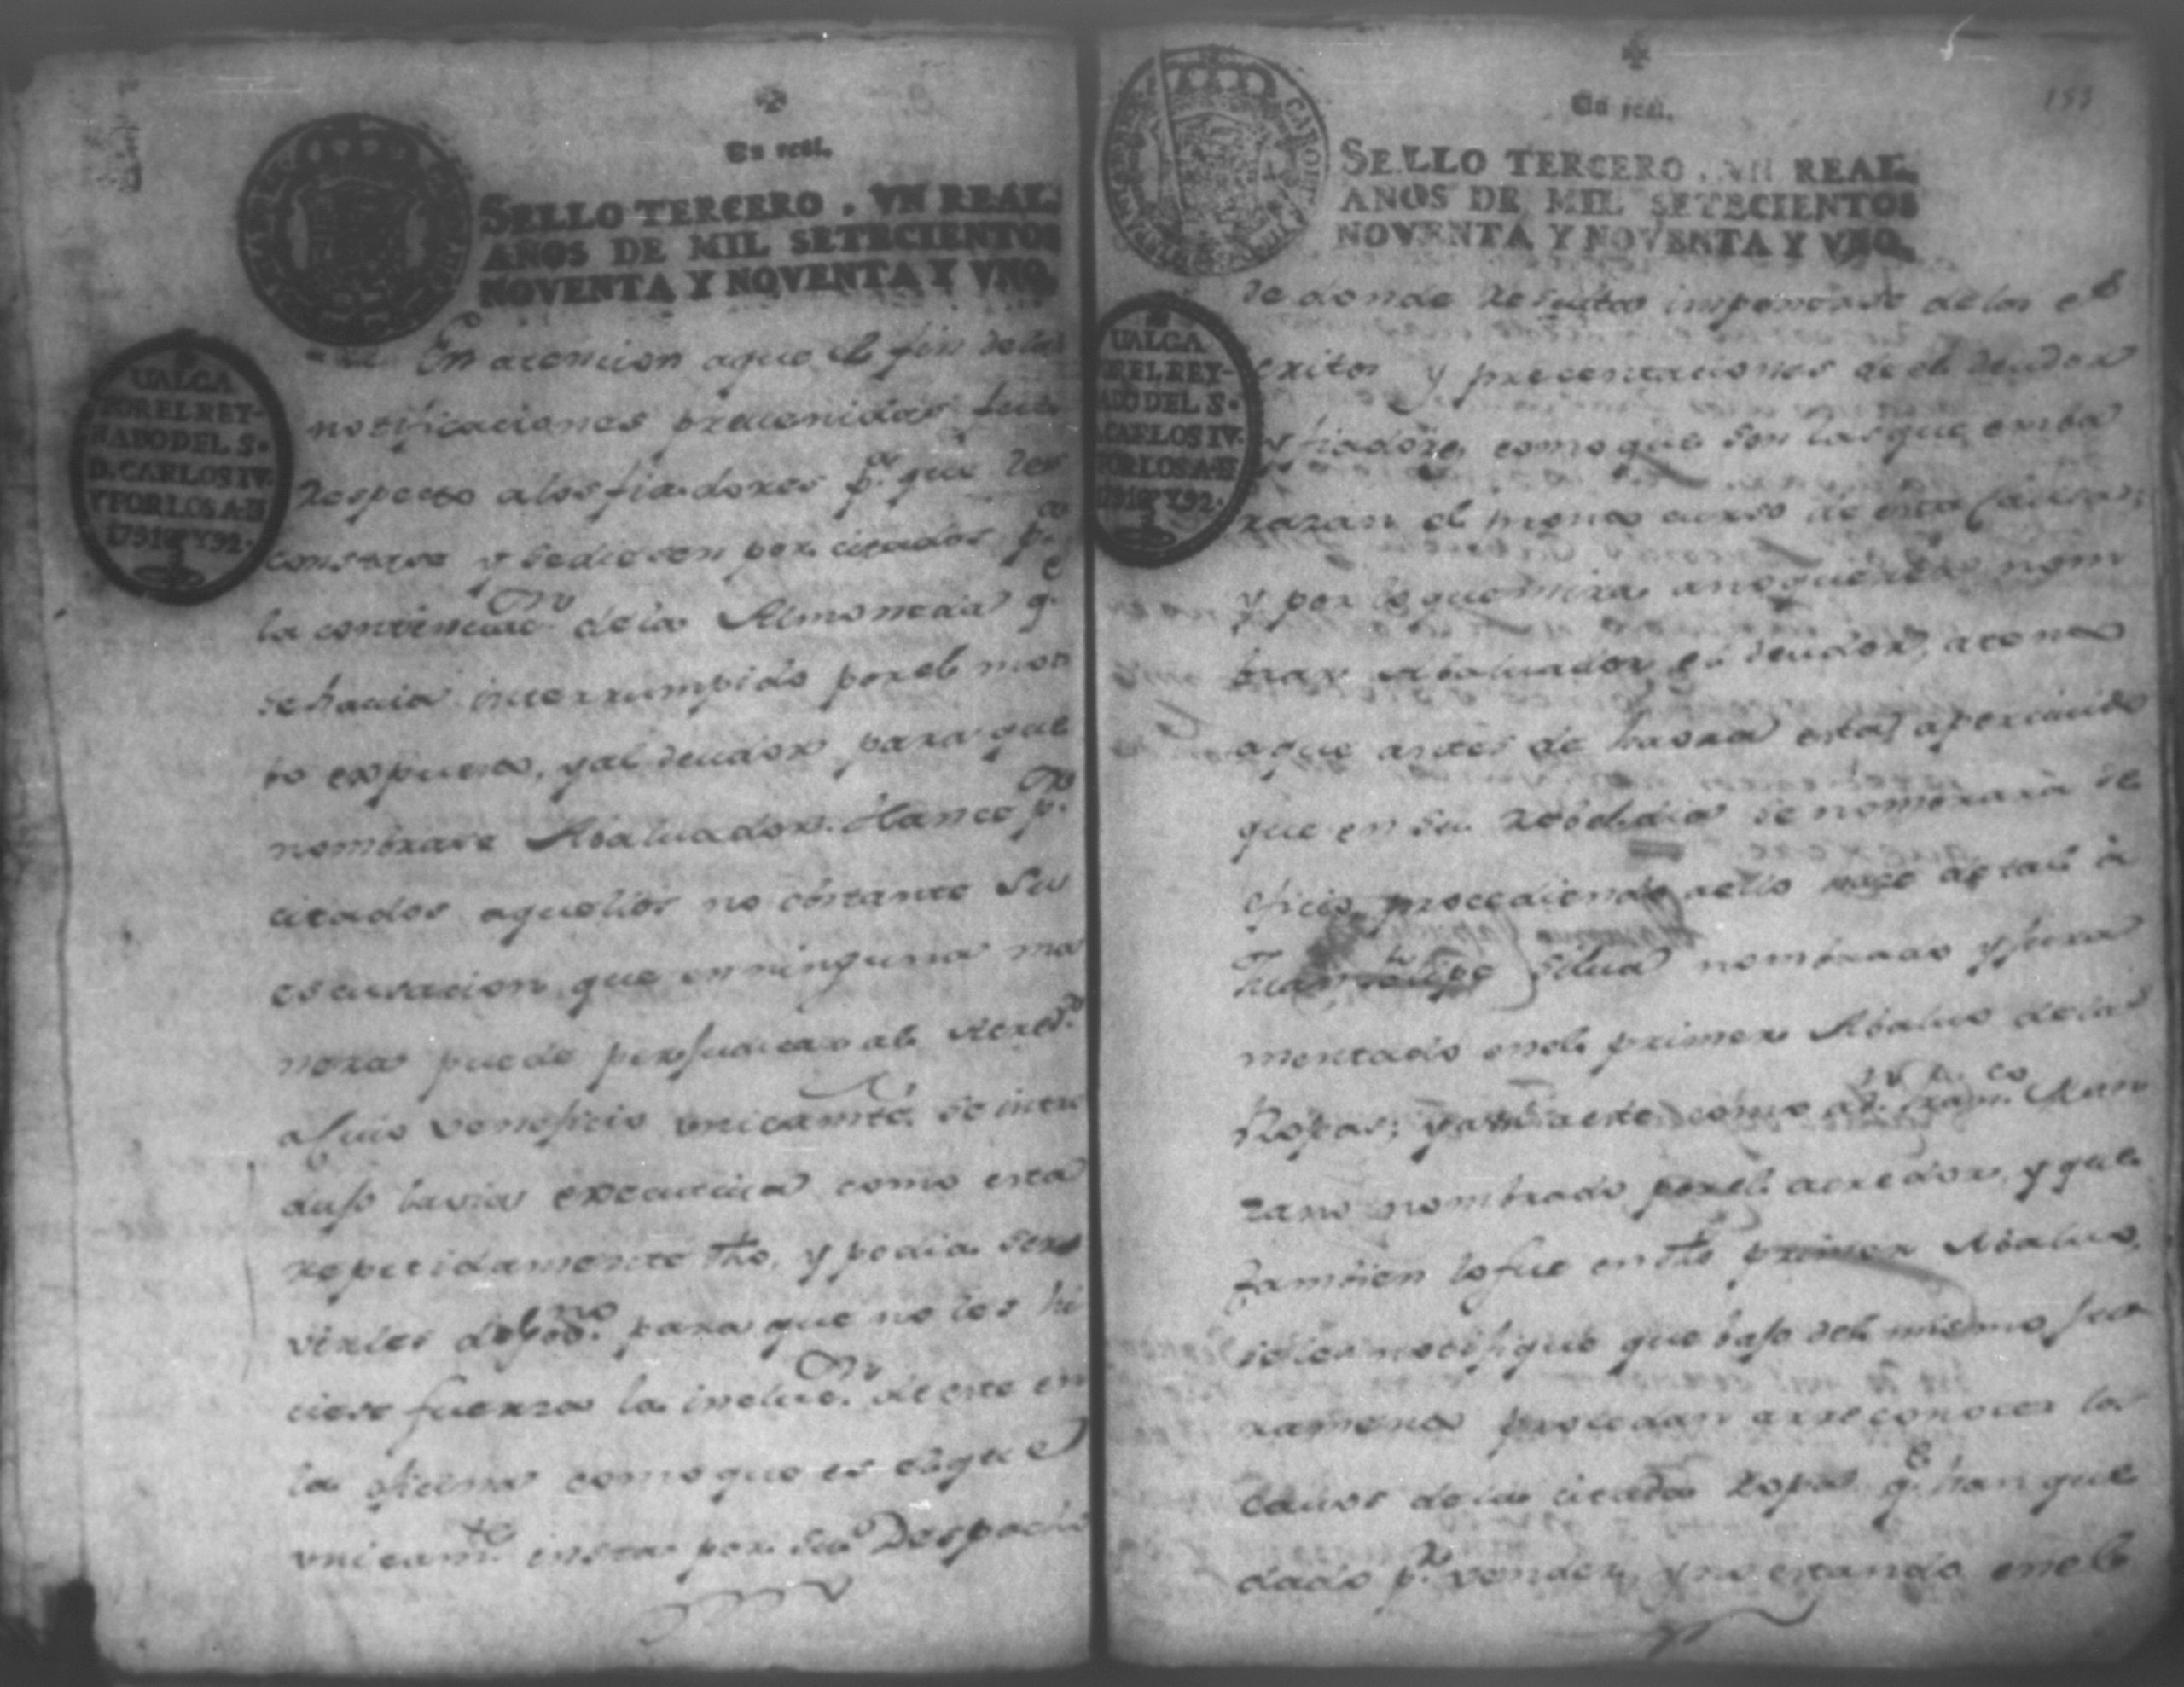 Un real.
SELLO TERCERO, VN REAL.
AÑOS DE MIL SETECIENTOS
NOVENTA Y NOVENTA Y VNO.
UALGA
POR EL REY-
NADO DEL S.
D. CARLOS IV.
Y POR LOS A.DE
1791 Y 92.
En atencion aque el fin de las
notificaciones prevenidas fue
respecto a los fiadores p.a que les
constase y se diesen por citados p.a
la continuac.on de la Almoneda q.e
se havia interrumpido por el moti
bo expuesto, y al deudor para que
nombrase Abaluador. Hance p.r
citados aquellos no obstante su
escusacion que en ninguna ma
nera puede perjudicar al Acreed.or
a cuio veneficio unicamte. se intro
dujo la via executiva como esta
repetidamente dho, y podia ser
virles de gov.no para que no les hi
ciese fuerza la incluc.on de este en
la oficina como que es el que
unicam.te insta por su Despacho
153
Un real.
SELLO TERCERO, VN REAL.
AÑOS DE MIL SETECIENTOS
NOVENTA Y NOVENTA Y VNO.
UALGA
POR EL REY-
NADO DEL S.
D. CARLOS IV.
Y POR LOS A.DE
1791 Y 92.
de donde resulta imponerse de los es
critos y precentaciones de el deudor
y fiadores, como que son las que emba
razan el pronto curso de esta Causa;
y por lo que mira a no querer nom
brar Abaluador el deudor, atento
a que antes de haora esta apercivido
que en su rebeldia se nombrara de
oficio, procediendo a ello hace de tal a
Juan Silua nombrado y jura
mentado en el primer Abaluo de las
Ropas; y asi a este como a D.n Fran.co Man
zano nombrado por el acredor, y que
tambien lo fue en dho primer Abaluo,
se les notifique que bajo del mismo ju
ramento procedan a rreconocer la
de la citada ropa q.e han que
dado p.r vender, y no estando en el